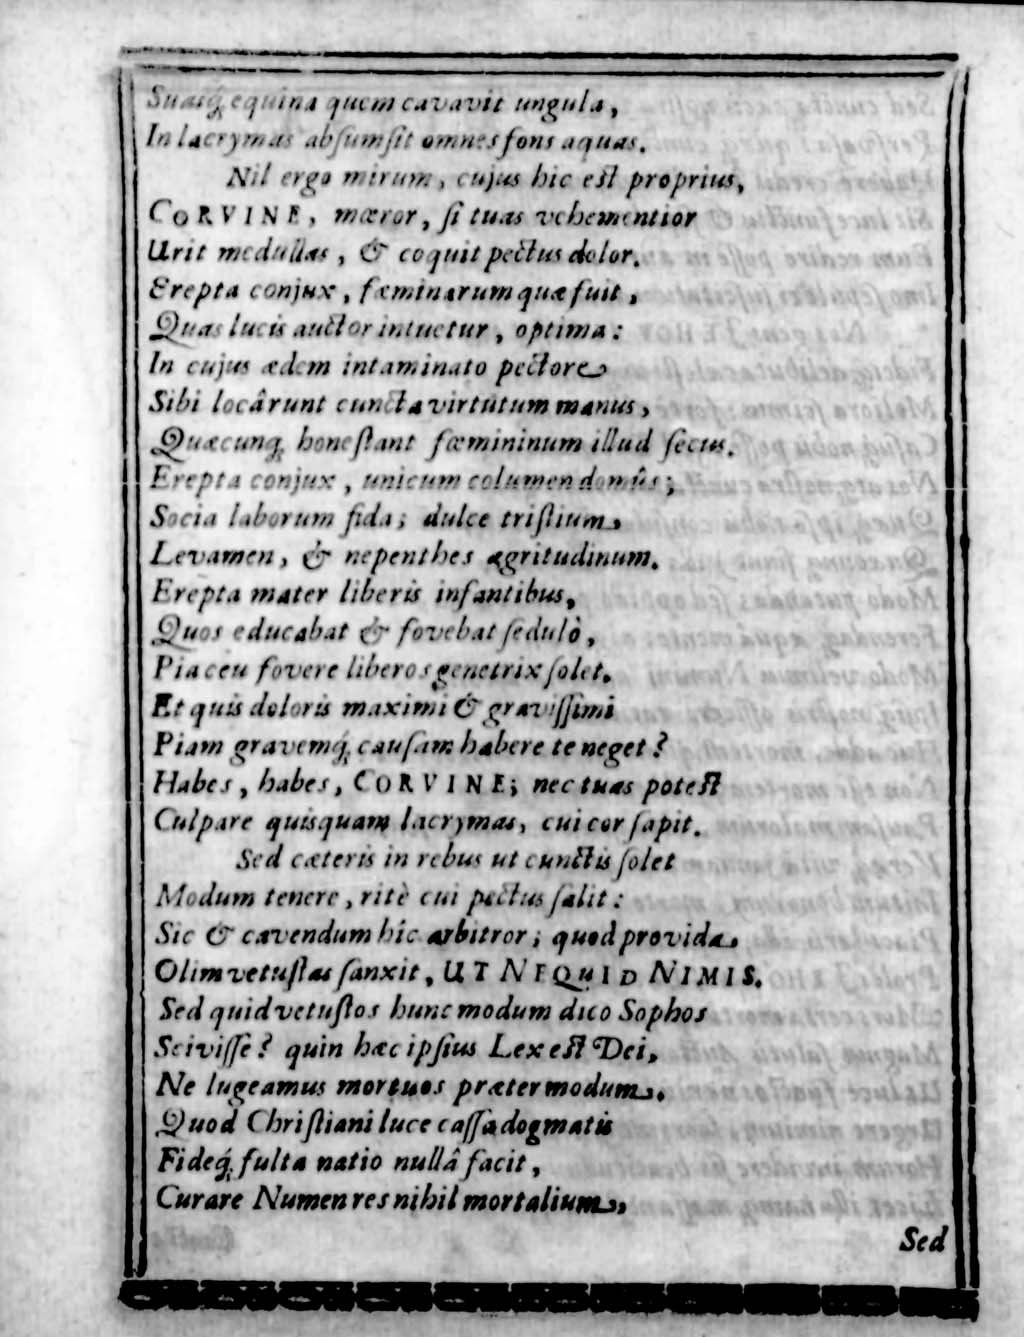 Suasq́; equina quem cavavit ungula,
In lacrymas absumsit omnes fons aquas.
Nil ergo mirum, cujus hic est proprius,
CORVINE, mæror, si tuas vehementior
Urit medullas, & coquit pectus dolor.
Erepta conjux, fæminarum quæ fuit,
Quas lucis auctor intuetur, optima:
In cujus ædem intaminato pectore
Sibi locârunt cuncta virtutum manus,
Quæcunq; honestant fæmininum illud secus.
Erepta conjux, unicum columen domûs;
Socia laborum fida; dulce tristium
Levamen, & nepenthes ægritudinum.
Erepta mater liberis infantibus,
Quos educabat & fovebat sedulò,
Pia ceu fovere liberos genetrix solet.
Et quis doloris maximi & gravissimi
Piam gravemq́; causam habere te neget?
Habes, habes, CORVINE; nec tuas potest
Culpare quisquam lacrymas, cui cor sapit.
Sed cæteris in rebus ut cunctis solet
Modum tenere, ritè cui pectus salit:
Sic & cavendum hîc arbitror; quod provida
Olim vetustas sanxit, UT NEQUID NIMIS.
Sed quid vetustos hunc modum dico Sophos
Scivisse? quin hæc ipsius Lex est Dei,
Ne lugeamus mortuos præter modum.
Quod Christiani luce cassa dogmatis
Fideq́; fulta natio nullâ facit,
Curare Numen res nihil mortalium,
Sed